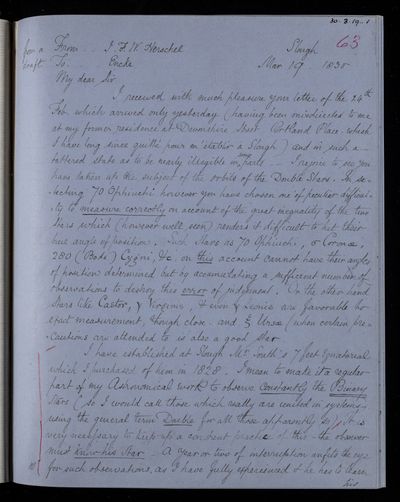 30.3.19..1
63
from a From .. J F W Herschel Slough
draft To .. Encke Mar 19 1830
My dear Sir
I received with much pleasure your letter of the 24th
Feb. which arrived only yesterday (having been misdirected to me
at my former residence at Devonshire Street Portland Place which
I have long since quitted pour m'établir a Slough) and in such a
tattered state as to be nearly illegible in parts — I rejoice to see you
have taken up the subject of the orbits of the Double Stars. In se-
lecting 70 Ophiuchi however you have chosen one of peculiar difficul-
ty to measure correctly on account of the great inequality of the two
stars which (however well seen) renders it difficult to hit their
true angle of position. Such stars as 70 Ophiuchi, σ Coronae,
280 (Bode) Cygni, &c. on this account cannot have their angles
of position determined but by accumulating a sufficient number of
observations to destroy this error of judgment. On the other hand
stars like Castor, γ Virginis, & even Leonis are favorable to
exact measurement, though close and ξ Ursa (when certain pre-
cautions are attended to is also a good star
I have established at Slough Mr. South's 7 feet Equatorial
which I purchased of him in 1828. I mean to make it a regular
part of my Astronomical work to observe constantly the Binary
Stars (so I would call those which really are united in systems,
using the general term Double for all those apparently so) it is
very necessary to keep up a constant practice of this - the observer
must know his star — A year or two of interruption unfits the eye
for such observations, as I have fully experienced & he has to learn
his